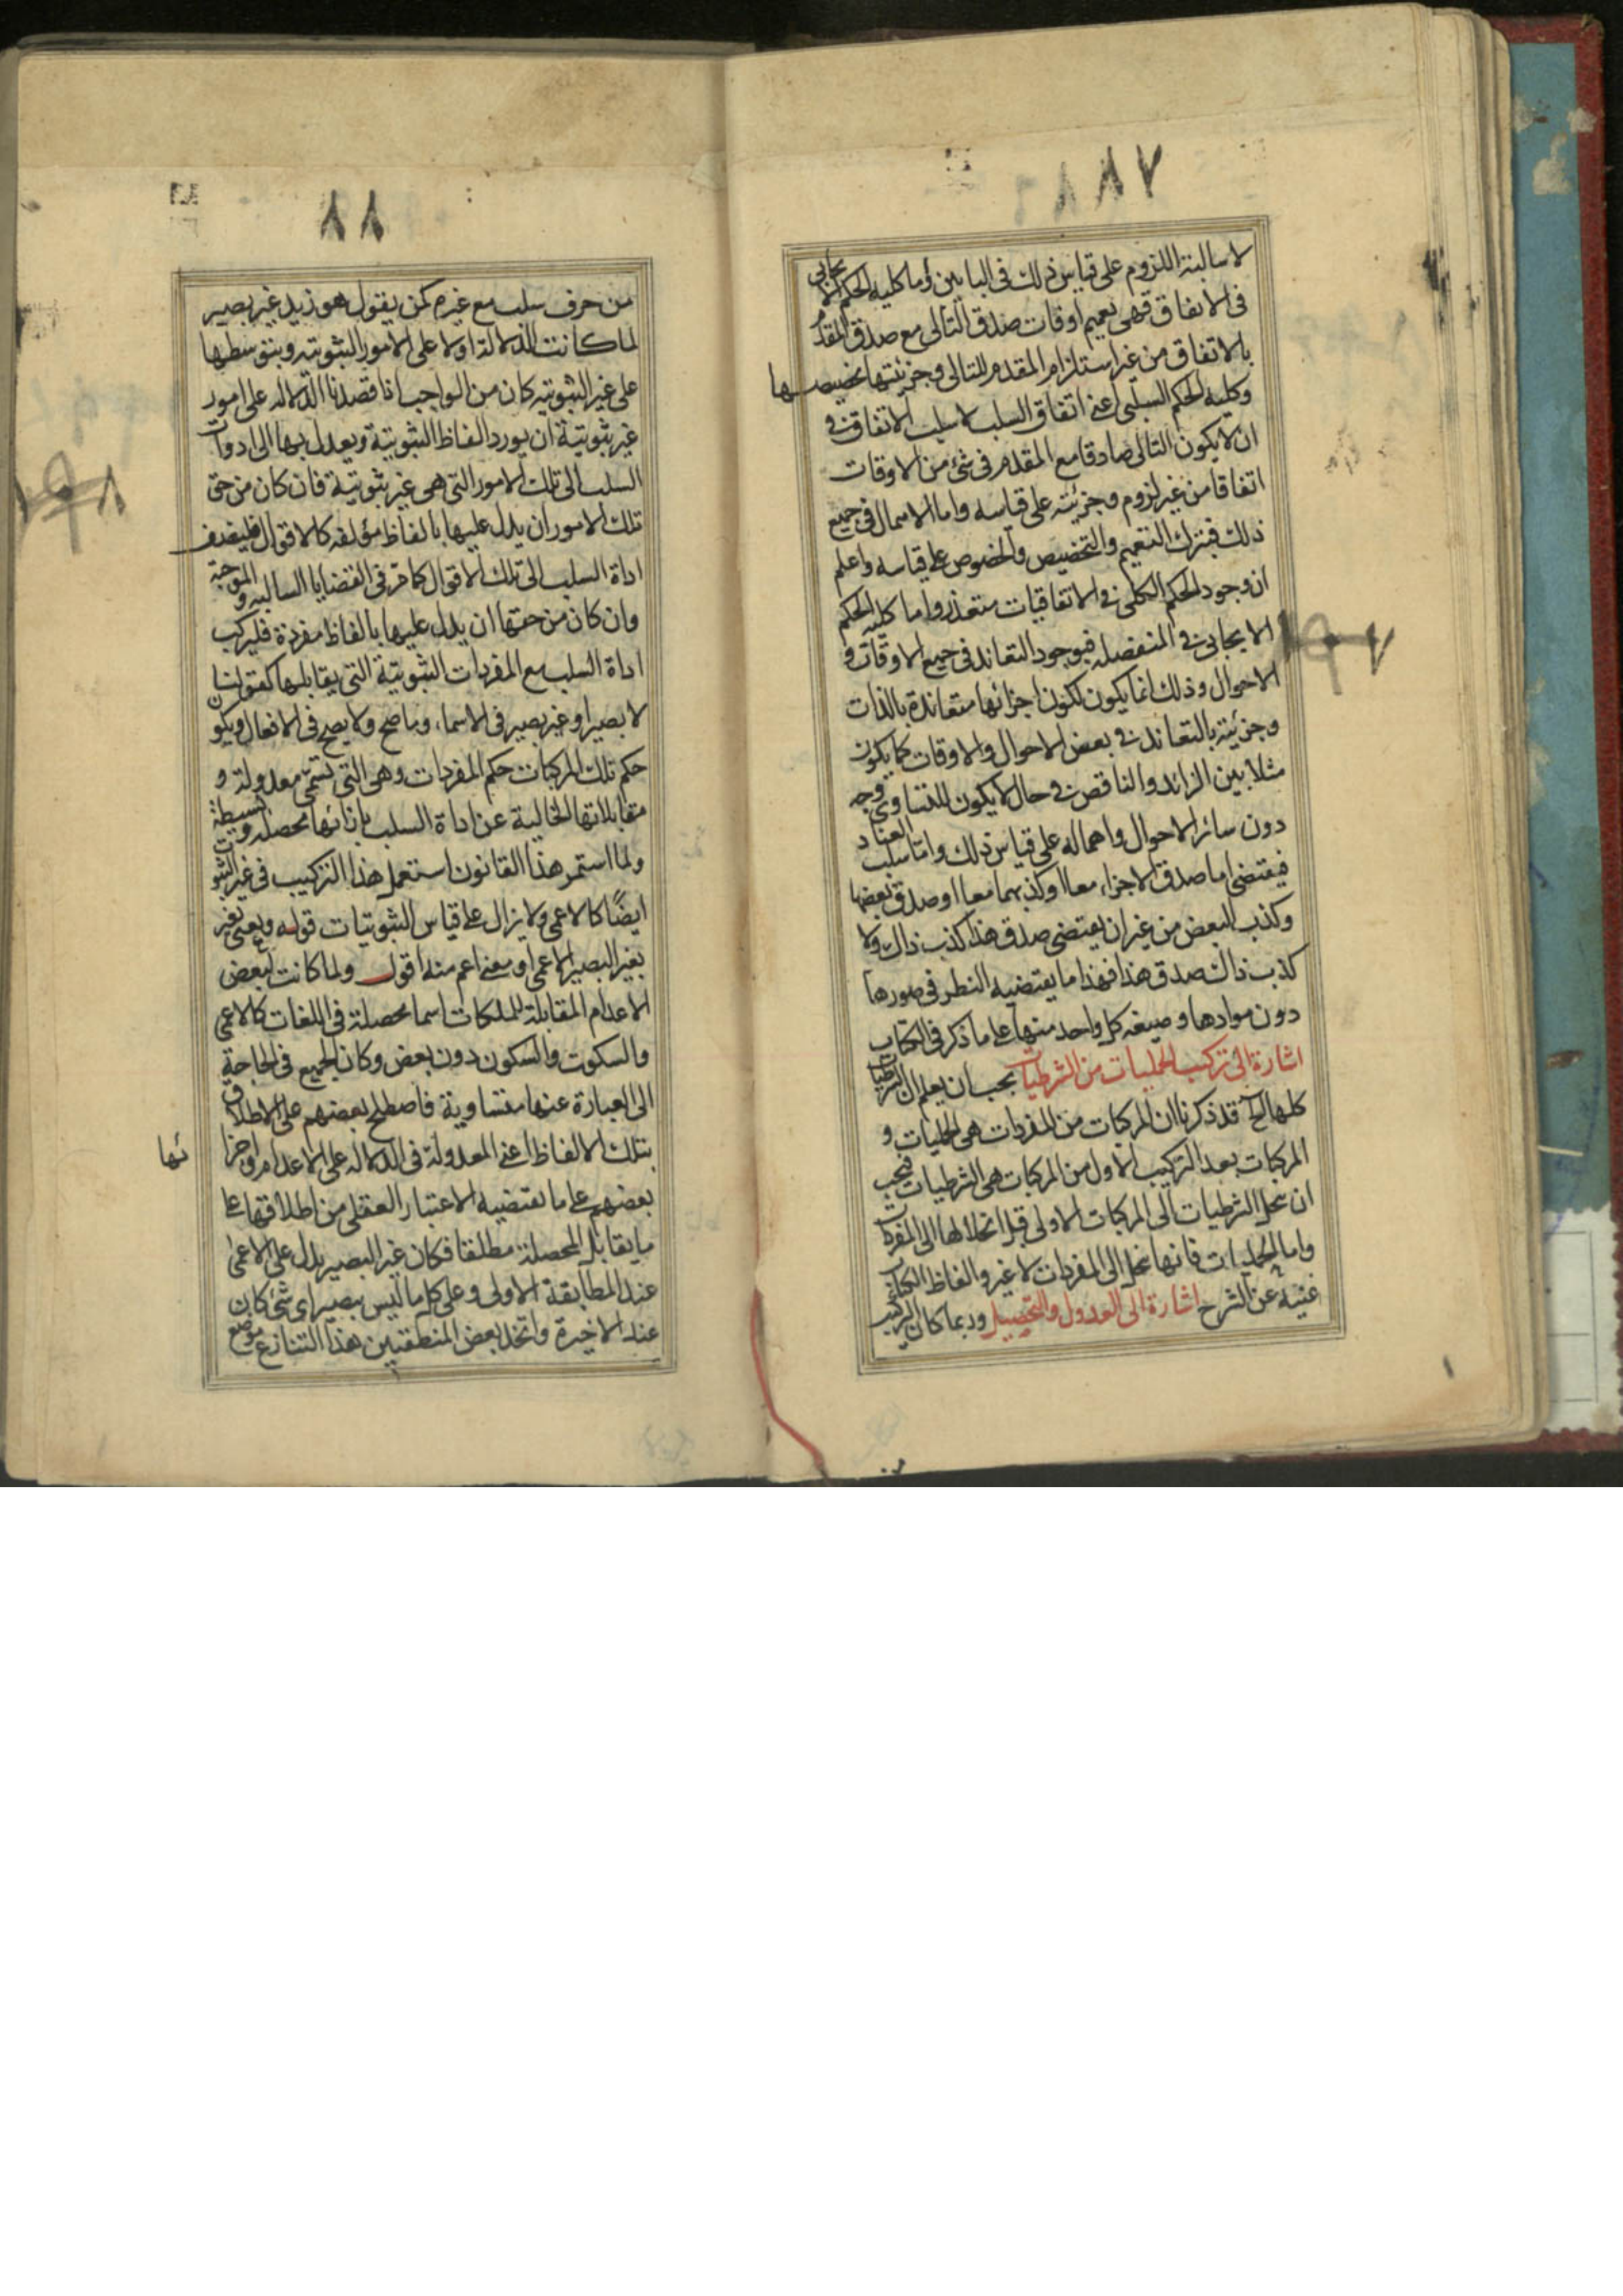 ٨٧
لا سالبة اللزوم على قياس ذلك في البابين وأما كلية الحكم الايجابي
في الاتفاق فهي تعميم اوقات صدق التالي مع صدق المقدم
بالاتفاق من غير استلزام المقدم للتالي وجزئيتها تخصيصها
وكلية الحكم السلبي اعني اتفاق السلب لا سلب الاتفاق في
ان لا يكون التالي صادقا مع المقدم في شئ من الاوقات
اتفاقا من غير لزوم وجزئيته على قياسه واما الاهمال في جميع
ذلك فبترك التعميم والتخصيص والخصوص على قياسه واعلم
ان وجود الحكم الكلي في الاتفاقيات متعذر واما كلية الحكم
الايجابي في المنفصله فبوجود التعاند في جميع الاوقات و
الاحوال وذلك انما يكون لكون اجزائها متعاندة بالذات
وجزئيته بالتعاند في بعض الاحوال والاوقات كما يكون
مثلا بين الزائد والناقص في حال لا يكون للتساوي وجه
دون سائر الاحوال واهماله على قياس ذلك واما سلب العناد
فيقتضي اما صدق الاجزاء معا او كذبهما معا او صدق بعضها
وكذب البعض من غير ان يقتضي صدق هذا كذب ذاك ولا
كذب ذاك صدق هذا فهذا ما يقتضيه النظر في صورها
دون موادها وصيغه كل واحد منها على ما ذكر في الكتاب
اشارة الى تركيب الحمليات من الشرطيات يجب ان يعلم ان الشرطيات
كلها الخ قد ذكرنا ان المركبات من المفردات هي الحمليات و
المركبات بعد التركيب الاول من المركبات هي الشرطيات فيجب
ان تنحل الشرطيات الى المركبات الاولى قبل انحلالها الى المفردات
واما الحمليات فانها تنحل الى المفردات لا غير والفاظ الكتاب
غنية عن الشرح اشارة الى العدول والتحصيل وربما كان التركيب
٨٨
من حرف سلب مع غيره كمن يقول هو زيد غير بصير
لما كانت الدلالة اولا على الامور الثبوتيه وبتوسطها
على غير الثبوتيه كان من الواجب انا قصدنا الدلاله على امور
غير ثبوتية ان يورد الفاظ الثبوتية ويعدل بها الى ادوات
السلب الى تلك الامور التي هي غير ثبوتية فان كان من حق
تلك الامور ان يدل عليها بالفاظ مؤلفه كالاقوال فليضف
اداة السلب الى تلك الاقوال كما مر في القضايا السالبه والموجبة
وان كان من حقها ان يدل عليها بالفاظ مفردة فليركب
اداة السلب مع المفردات الثبوتية التي يقابلها كقولنا
لا بصير او غير بصير في الاسماء وما صح ولا يصح في الافعال ويكون
حكم تلك المركبات حكم المفردات وهي التي تسمى معدولة و
مقابلاتها الخالية عن اداة السلب بازائها محصله وبسيطة
ولما استمر هذا القانون استعمل هذا التركيب في غير الثبوت
ايضا كالاعمى ولا يزال على قياس الثبوتيات قوله ويعني بغير
بغير البصير الاعمى او معنى اعم منه اقول ولما كانت لبعض
الاعدام المقابلة للملكات اسما محصلة في اللغات كالاعمى
والسكوت والسكون دون بعض وكان الجميع في الحاجة
الى العبارة عنها متساوية فاصطلح بعضهم على الاطلاق
بتلك الالفاظ اعني المعدولة في الدلاله على الاعدام واجرا
ئها
بعضهم على ما تقتضيه الاعتبار العقلي من اطلاقها على
ما يقابل المحصلة مطلقا فكان غير البصير يدل على الاعمى
عند المطابقة الاولى وعلى كل ما ليس ببصير اي شئ كان
عند الاخيرة واتخذ بعض المنطقيين هذا التنازع موضع